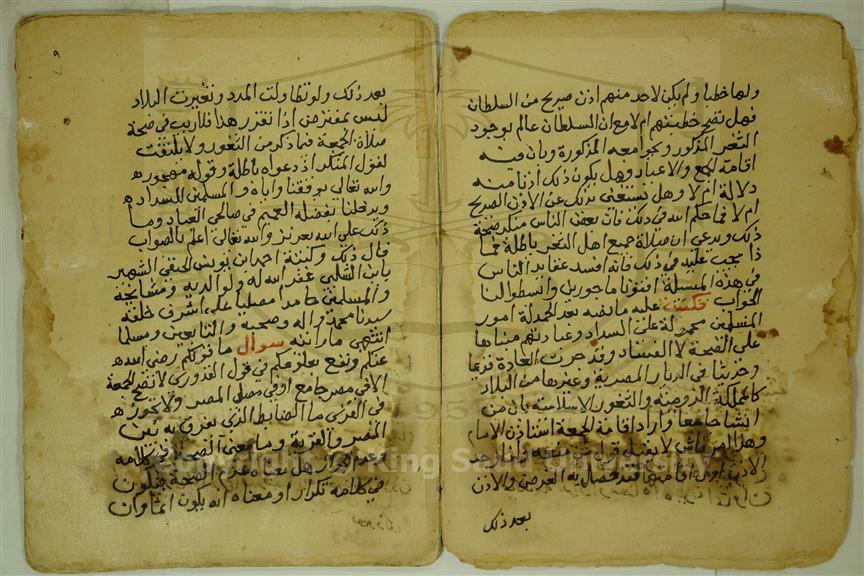 ولها خطبا ولم يكن لاحد منهم اذن صريح من السلطان
فهل تصح خطبتهم ام لا مع ان السلطان عالم بوجود
الثغر المذكور وبجوامعه المذكورة وبان فيه
اقامة الجمع والاعياد وهل يكون ذلك اذنا منه
دلالة ام لا وهل يستغنى بذلك عن الاذن الصريح
ام لا فما حكم الله في ذلك فان بعض الناس منكر صحة
ذلك ويدعي ان صلاة جميع اهل الثغر باطلة فما
ذا يجب عليه في ذلك فانه افسد عقايد الناس
في هذه المسئلة افتونا ماجورين وابسطوا لنا
الجواب فكتب عليه ما نصه بعد الحمدلة امور
المسلمين محمولة على السداد وعباداتهم مبناها
على الصحة لا الفساد وقد جرت العادة قديما
وحديثا في الديار المصرية وغيرها من البلاد
كالمملكة الرومية والثغور الاسلامية بان من
انشا جامعا واراد اقامة الجمعة استاذن الامام
وهذا امر فاش
الاذن اول اقامتها فقد حصل به الغرض والاذن
بعد ذلك
بعد ذلك ولو تطاولت المدد وتغيرت البلاد
ليس بمفترض اذا تقرر هذا فلا ريب في صحة
صلاة الجمعة فيما ذكر من الثغور ولا يلتفت
لقول المنكر اذ دعواه باطلة وقوله مهجور
والله تعالى يوفقنا واياه والمسلمين للسداد
ويدخلنا بفضله العميم في صالحي العباد وما
ذلك على الله بعزيز والله تعالى اعلم بالصواب
قال ذلك وكتبه احمد بن يونس الحنفي الشهير
بابن الشلبي غفر الله له ولوالديه ومشايخه
والمسلمين حامدا مصليا على اشرف خلقه
سيدنا محمد واله وصحبه والتابعين ومسلما
انتهى ما رايته سوال ما قولكم رضي الله
عنكم ونفع بعلومكم في قول القدوري لا تصح الجمعة
الا في مصر جامع او في مصلى المصر ولا تجوز
في القرى ما الضابط الذي يفرق به بين
المصر والقرية وما معنى الصحة في كلامه
وعدم الجواز هل معناه عدم الصحة فيكون
في كلامه تكرار او معناه انه يكون